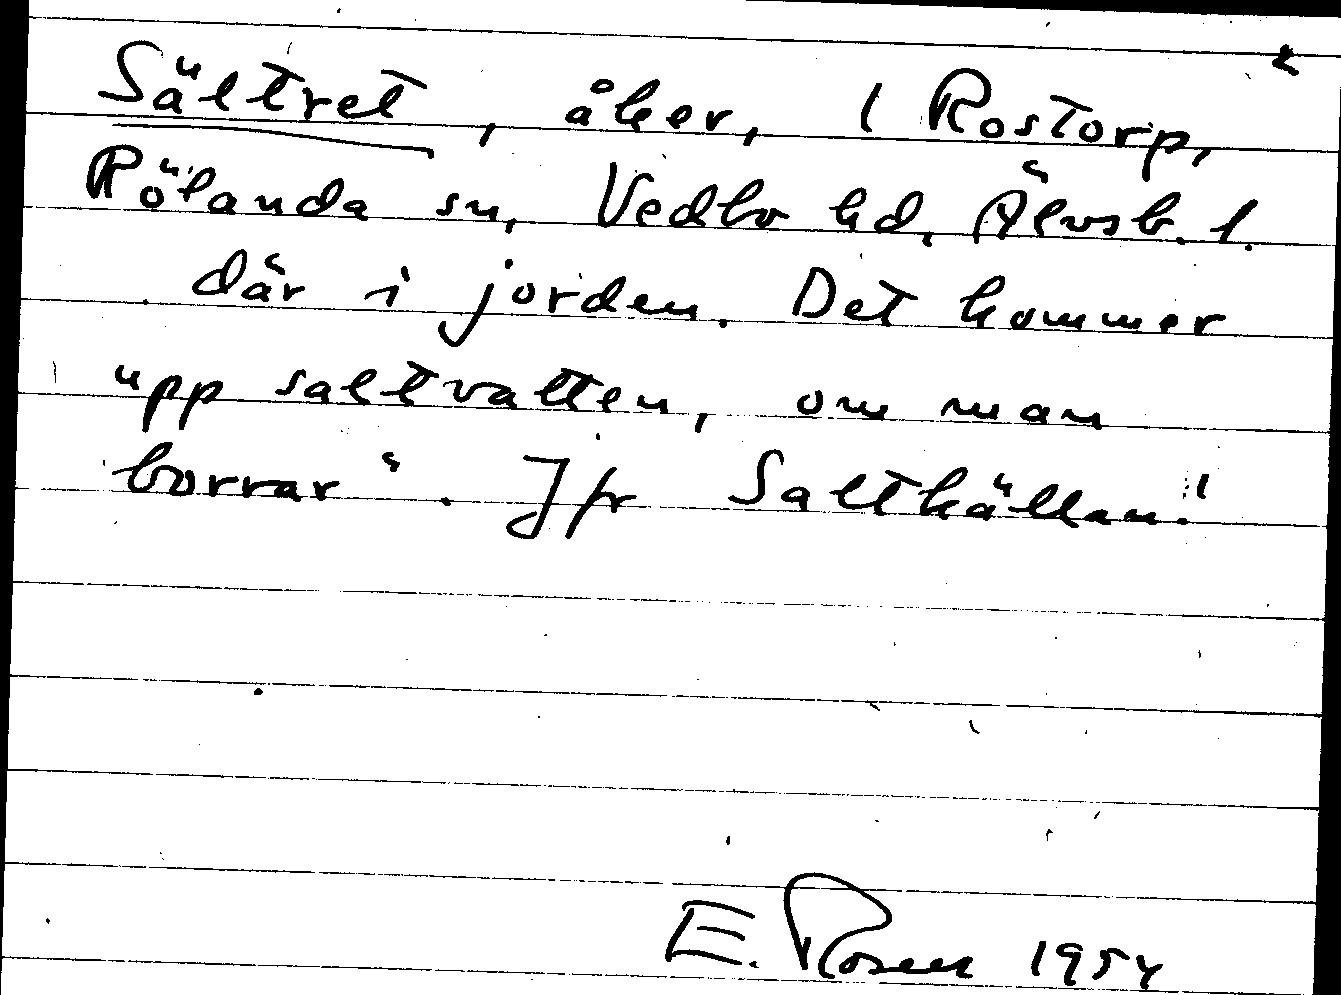 2
Sältret, åker, 1 Rostorp,
Rölanda sn, Vedbo hd, Älvsb. l.
där i jorden. Det kommer
upp saltvatten, om man
borrar". Jfr Saltkällan!
E. Rosell 1954